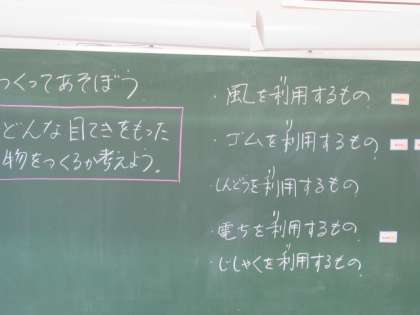 つくってあそぼう
どんな目てきをもった
物をつくるか考えよう。
・風を利用するもの
・ゴムを利用するもの
・しんどうを利用するもの
・電ちを利用するもの
・じしゃくを利用するもの